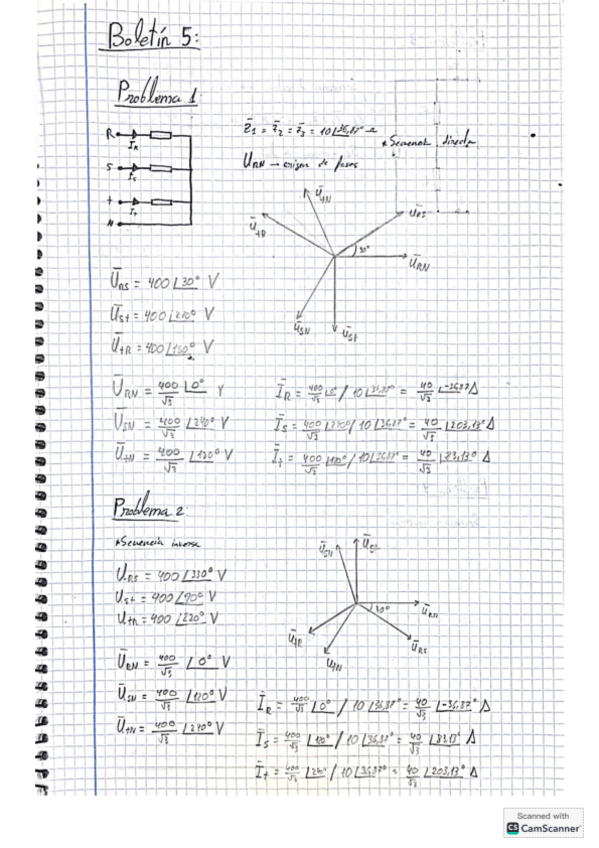 Boletín 5:
Problema 1
R
I_R
S
I_s
t
I_t
N
Z̄1 = Z̄2 = Z̄3 = 10∠36,87° Ω
* Secuencia directa
U_RN → origen de fases
Ū_tN
Ū_tR
Ū_RS
30°
Ū_RN
Ū_SN
Ū_St
Ū_RS = 400∠30° V
Ū_St = 400∠270° V
Ū_tR = 400∠150° V
Ū_RN = 400/√3 ∠0° V
Ū_SN = 400/√3 ∠240° V
Ū_tN = 400/√3 ∠120° V
Ī_R = 400/√3 ∠0° / 10∠36,87° = 40/√3 ∠-36,87° A
Ī_S = 400/√3 ∠240° / 10∠36,87° = 40/√3 ∠203,13° A
Ī_t = 400/√3 ∠120° / 10∠36,87° = 40/√3 ∠83,13° A
Problema 2:
* Secuencia inversa
Ū_SN
Ū_St
Ū_RN
30°
Ū_tR
Ū_tN
Ū_RS
U_RS = 400∠330° V
U_St = 400∠90° V
U_tR = 400∠220° V
Ū_RN = 400/√3 ∠0° V
Ū_SN = 400/√3 ∠120° V
Ū_tN = 400/√3 ∠240° V
Ī_R = 400/√3 ∠0° / 10∠36,87° = 40/√3 ∠-36,87° A
Ī_S = 400/√3 ∠120° / 10∠36,87° = 40/√3 ∠83,13° A
Ī_t = 400/√3 ∠240° / 10∠36,87° = 40/√3 ∠203,13° A
Scanned with
CS CamScanner